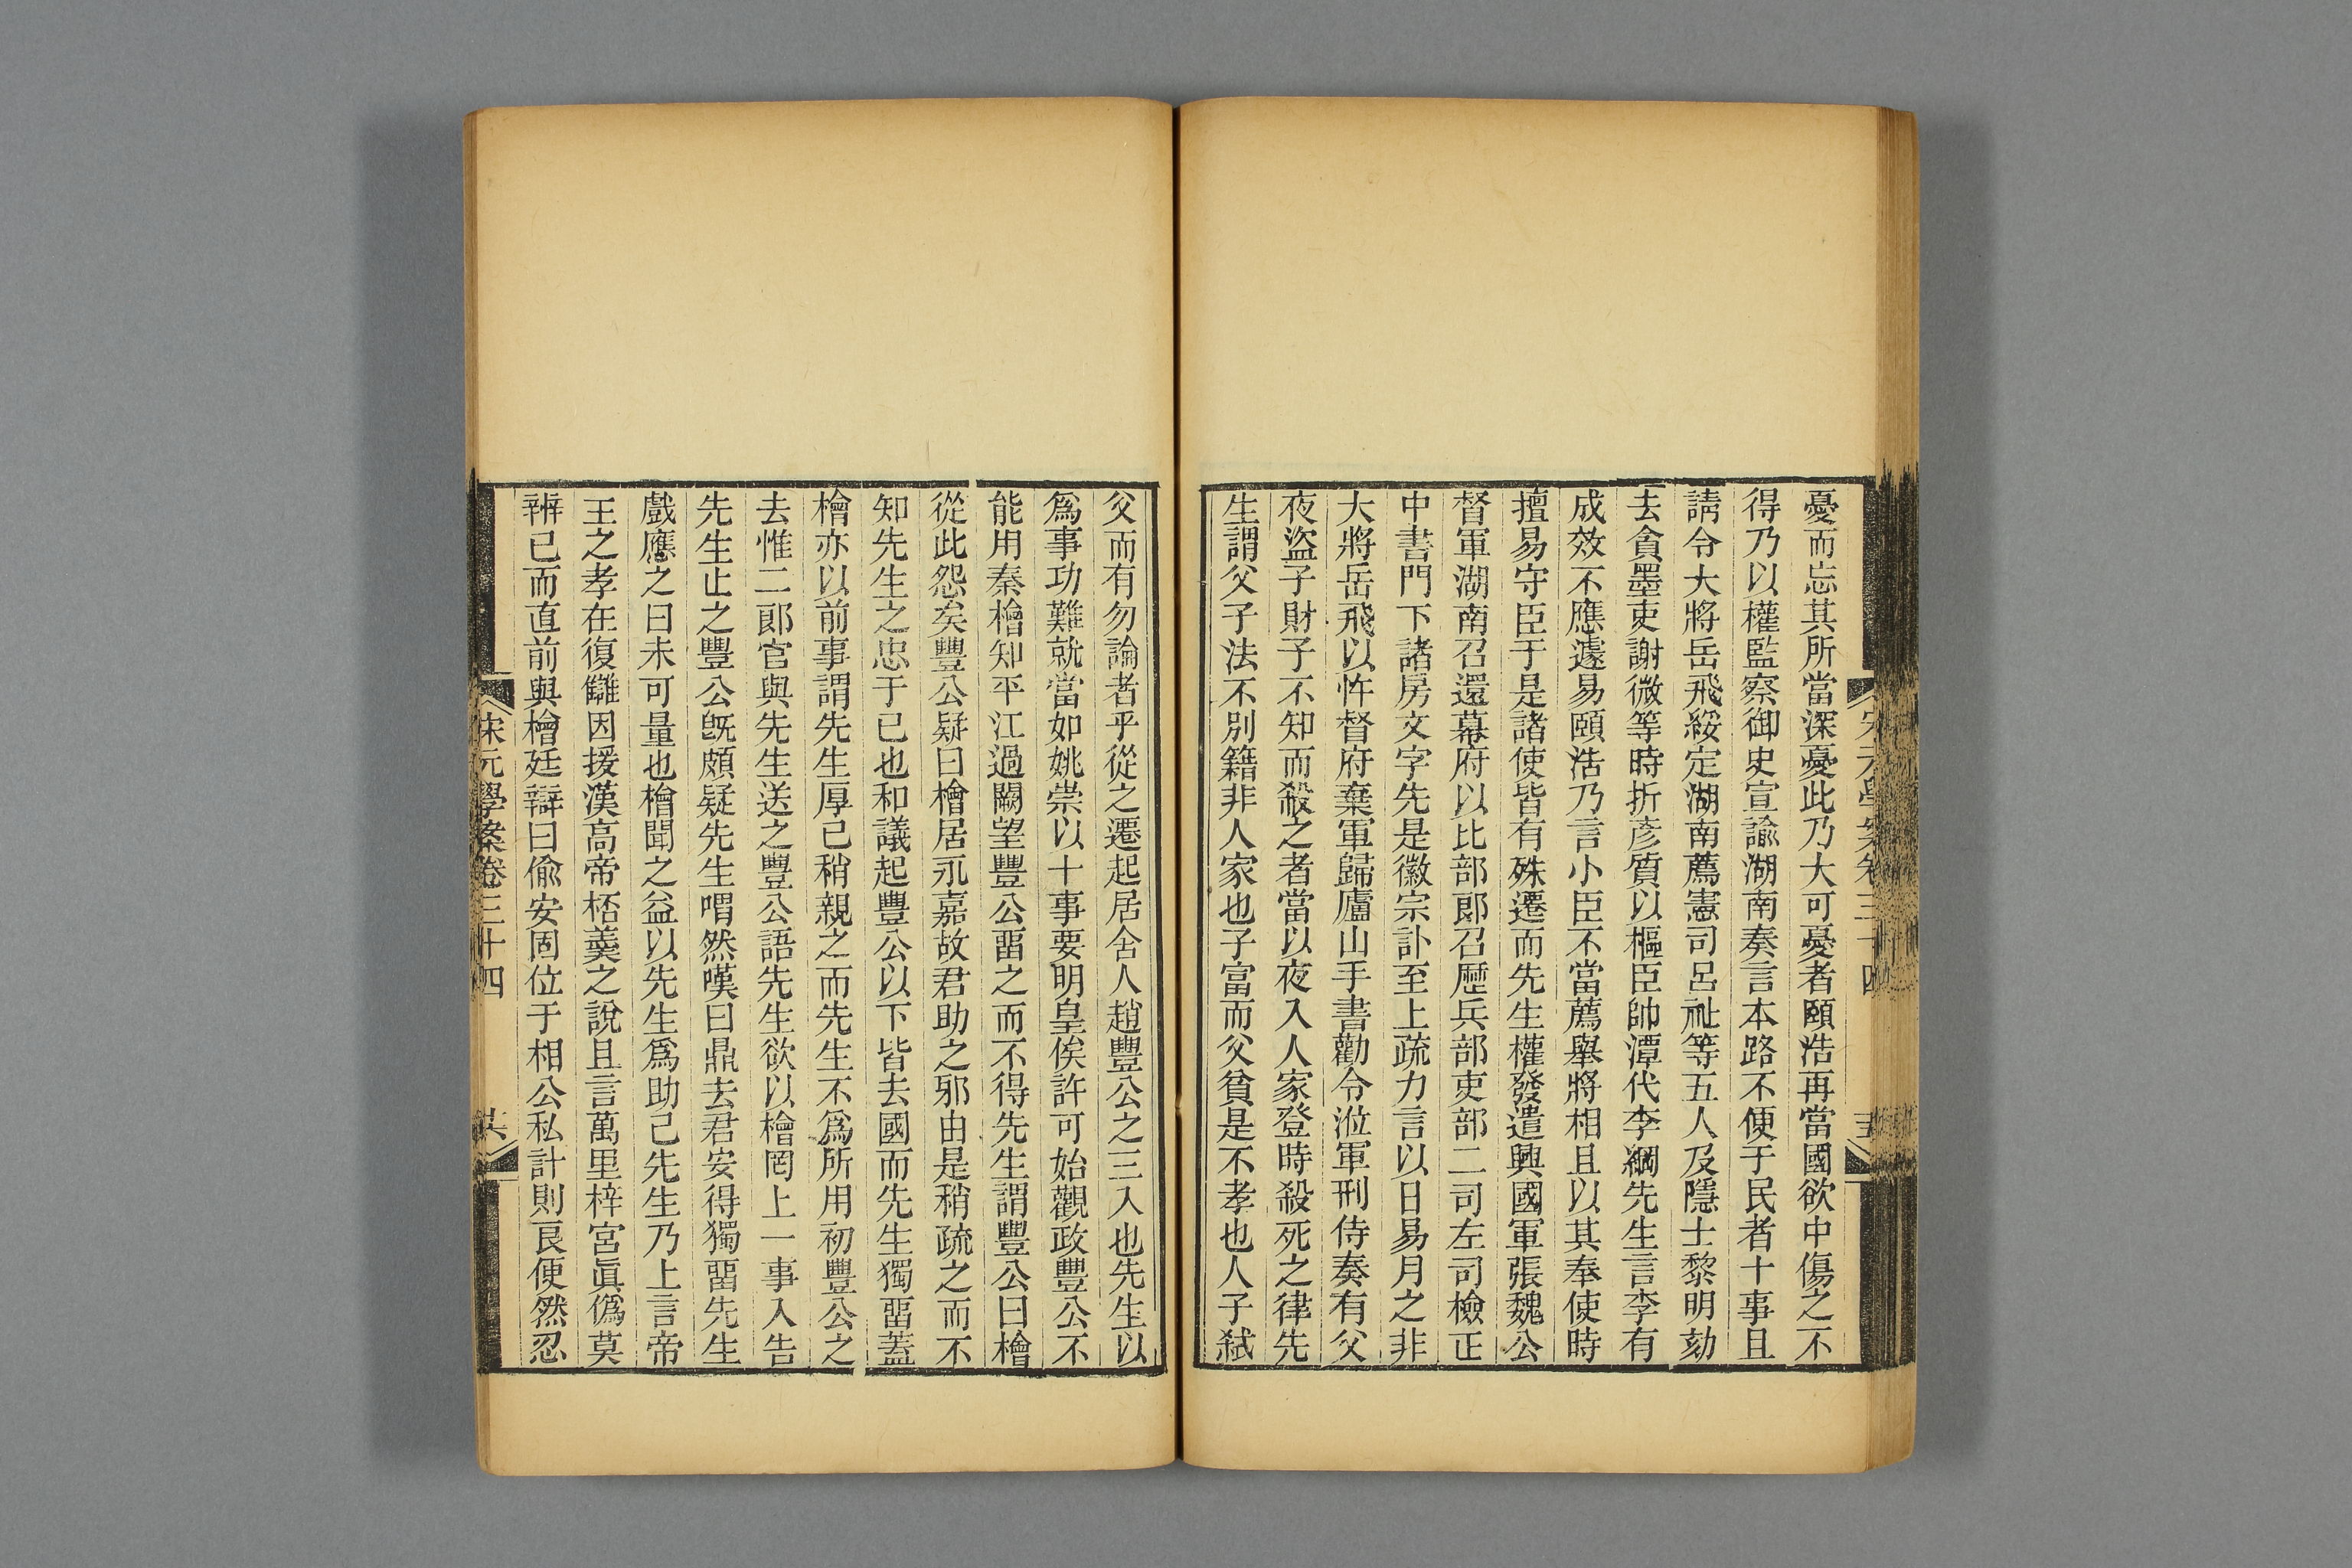 憂而忘其所當深憂此乃大可憂者頤浩再當國欲中傷之不
得乃以權監察御史宣諭湖南奏言本路不便于民者十事且
請令大將岳飛綏定湖南薦憲司呂祉等五人及隱士黎明劾
去貪墨吏謝微等時折彥質以樞臣帥潭代李綱先生言李有
成效不應遽易頤浩乃言小臣不當薦舉將相且以其奉使時
擅易守臣于是諸使皆有殊遷而先生權發遣興國軍張魏公
督軍湖南召還幕府以比部郞召歷兵部吏部二司左司檢正
中書門下諸房文字先是徽宗訃至上疏力言以日易月之非
大將岳飛以忤督府棄軍歸廬山手書勸令涖軍刑侍奏有父
夜盜子財子不知而殺之者當以夜入人家登時殺死之律先
生謂父子法不別籍非人家也子富而父貧是不孝也人子弒
宋元學案卷三十四
父而有勿論者乎從之遷起居舍人趙豐公之三入也先生以
爲事功難就當如姚崇以十事要明皇俟許可始觀政豐公不
能用秦檜知平江過闕望豐公畱之而不得先生謂豐公曰檜
從此怨矣豐公疑曰檜居永嘉故君助之邪由是稍疏之而不
知先生之忠于己也和議起豐公以下皆去國而先生獨畱蓋
檜亦以前事謂先生厚己稍親之而先生不爲所用初豐公之
去惟二郞官與先生送之豐公語先生欲以檜罔上一事入告
先生止之豐公旣頗疑先生喟然嘆曰鼎去君安得獨畱先生
戲應之曰未可量也檜聞之益以先生爲助己先生乃上言帝
王之孝在復讎因援漢高帝桮羹之說且言萬里梓宮眞僞莫
辨已而直前與檜廷辯曰偸安固位于相公私計則良便然忍
宋元學案卷三十四
共